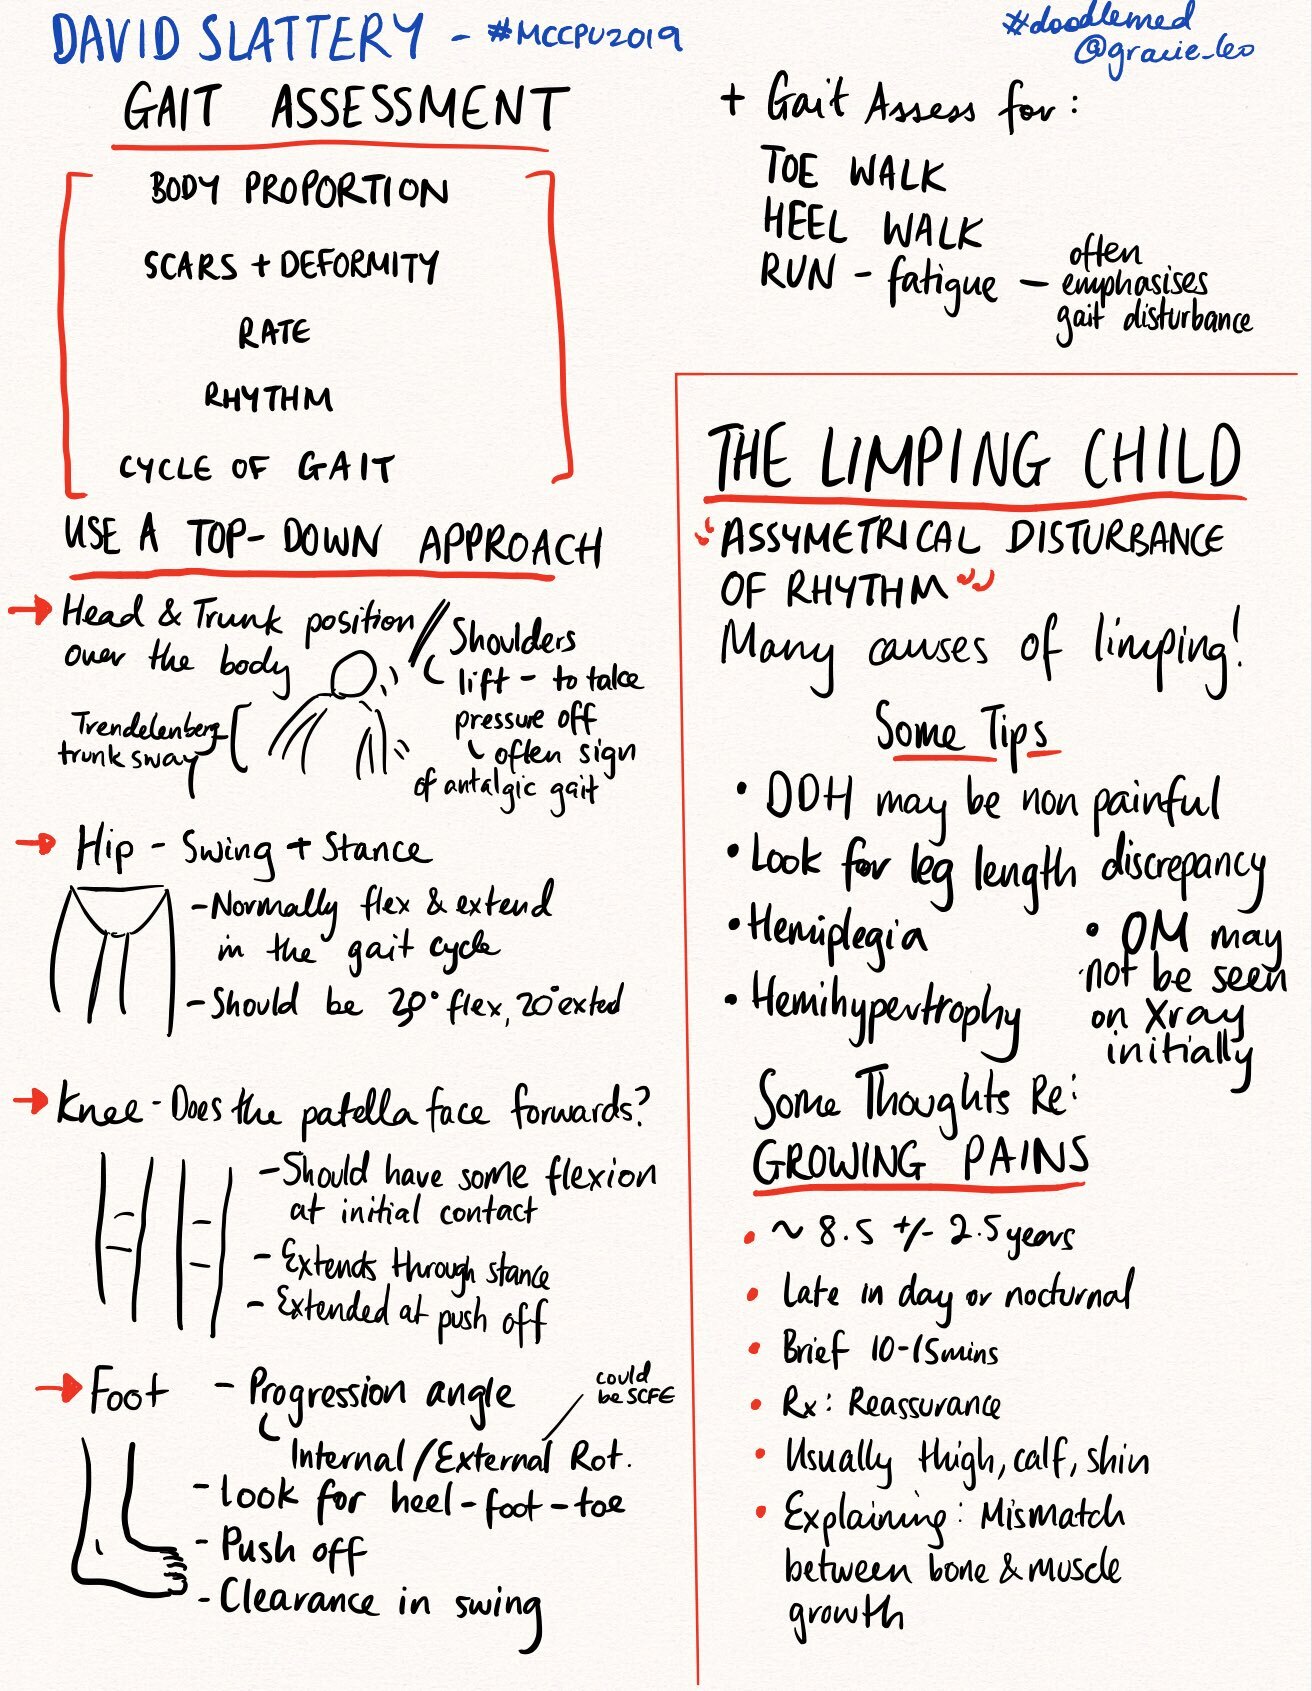 DAVID SLATTERY - #MCCPU2019
#doodlemed
@gracie_leo
GAIT ASSESSMENT
BODY PROPORTION
SCARS + DEFORMITY
RATE
RHYTHM
CYCLE OF GAIT
USE A TOP-DOWN APPROACH
→ Head & Trunk position
over the body
Trendelenberg
trunk sway
Shoulders
lift - to take
pressure off
often sign
of antalgic gait
→ Hip - Swing + Stance
- Normally flex & extend
in the gait cycle
- Should be 30° flex, 20° exted
→ Knee - Does the patella face forwards?
- Should have some flexion
at initial contact
- Extends through stance
- Extended at push off
→ Foot - Progression angle
could
be SCFE
Internal / External Rot.
- look for heel - foot - toe
- Push off
- Clearance in swing
+ Gait Assess for:
TOE WALK
HEEL WALK
RUN - fatigue - often
emphasises
gait disturbance
THE LIMPING CHILD
"ASSYMETRICAL DISTURBANCE
OF RHYTHM"
Many causes of limping!
Some Tips
• DDH may be non painful
• Look for leg length discrepancy
• Hemiplegia
• Hemihypertrophy
• OM may
not be seen
on Xray
initially
Some Thoughts Re:
GROWING PAINS
• ~ 8.5 +/- 2.5 years
• Late in day or nocturnal
• Brief 10-15mins
• Rx: Reassurance
• Usually thigh, calf, shin
• Explaining: Mismatch
between bone & muscle
growth